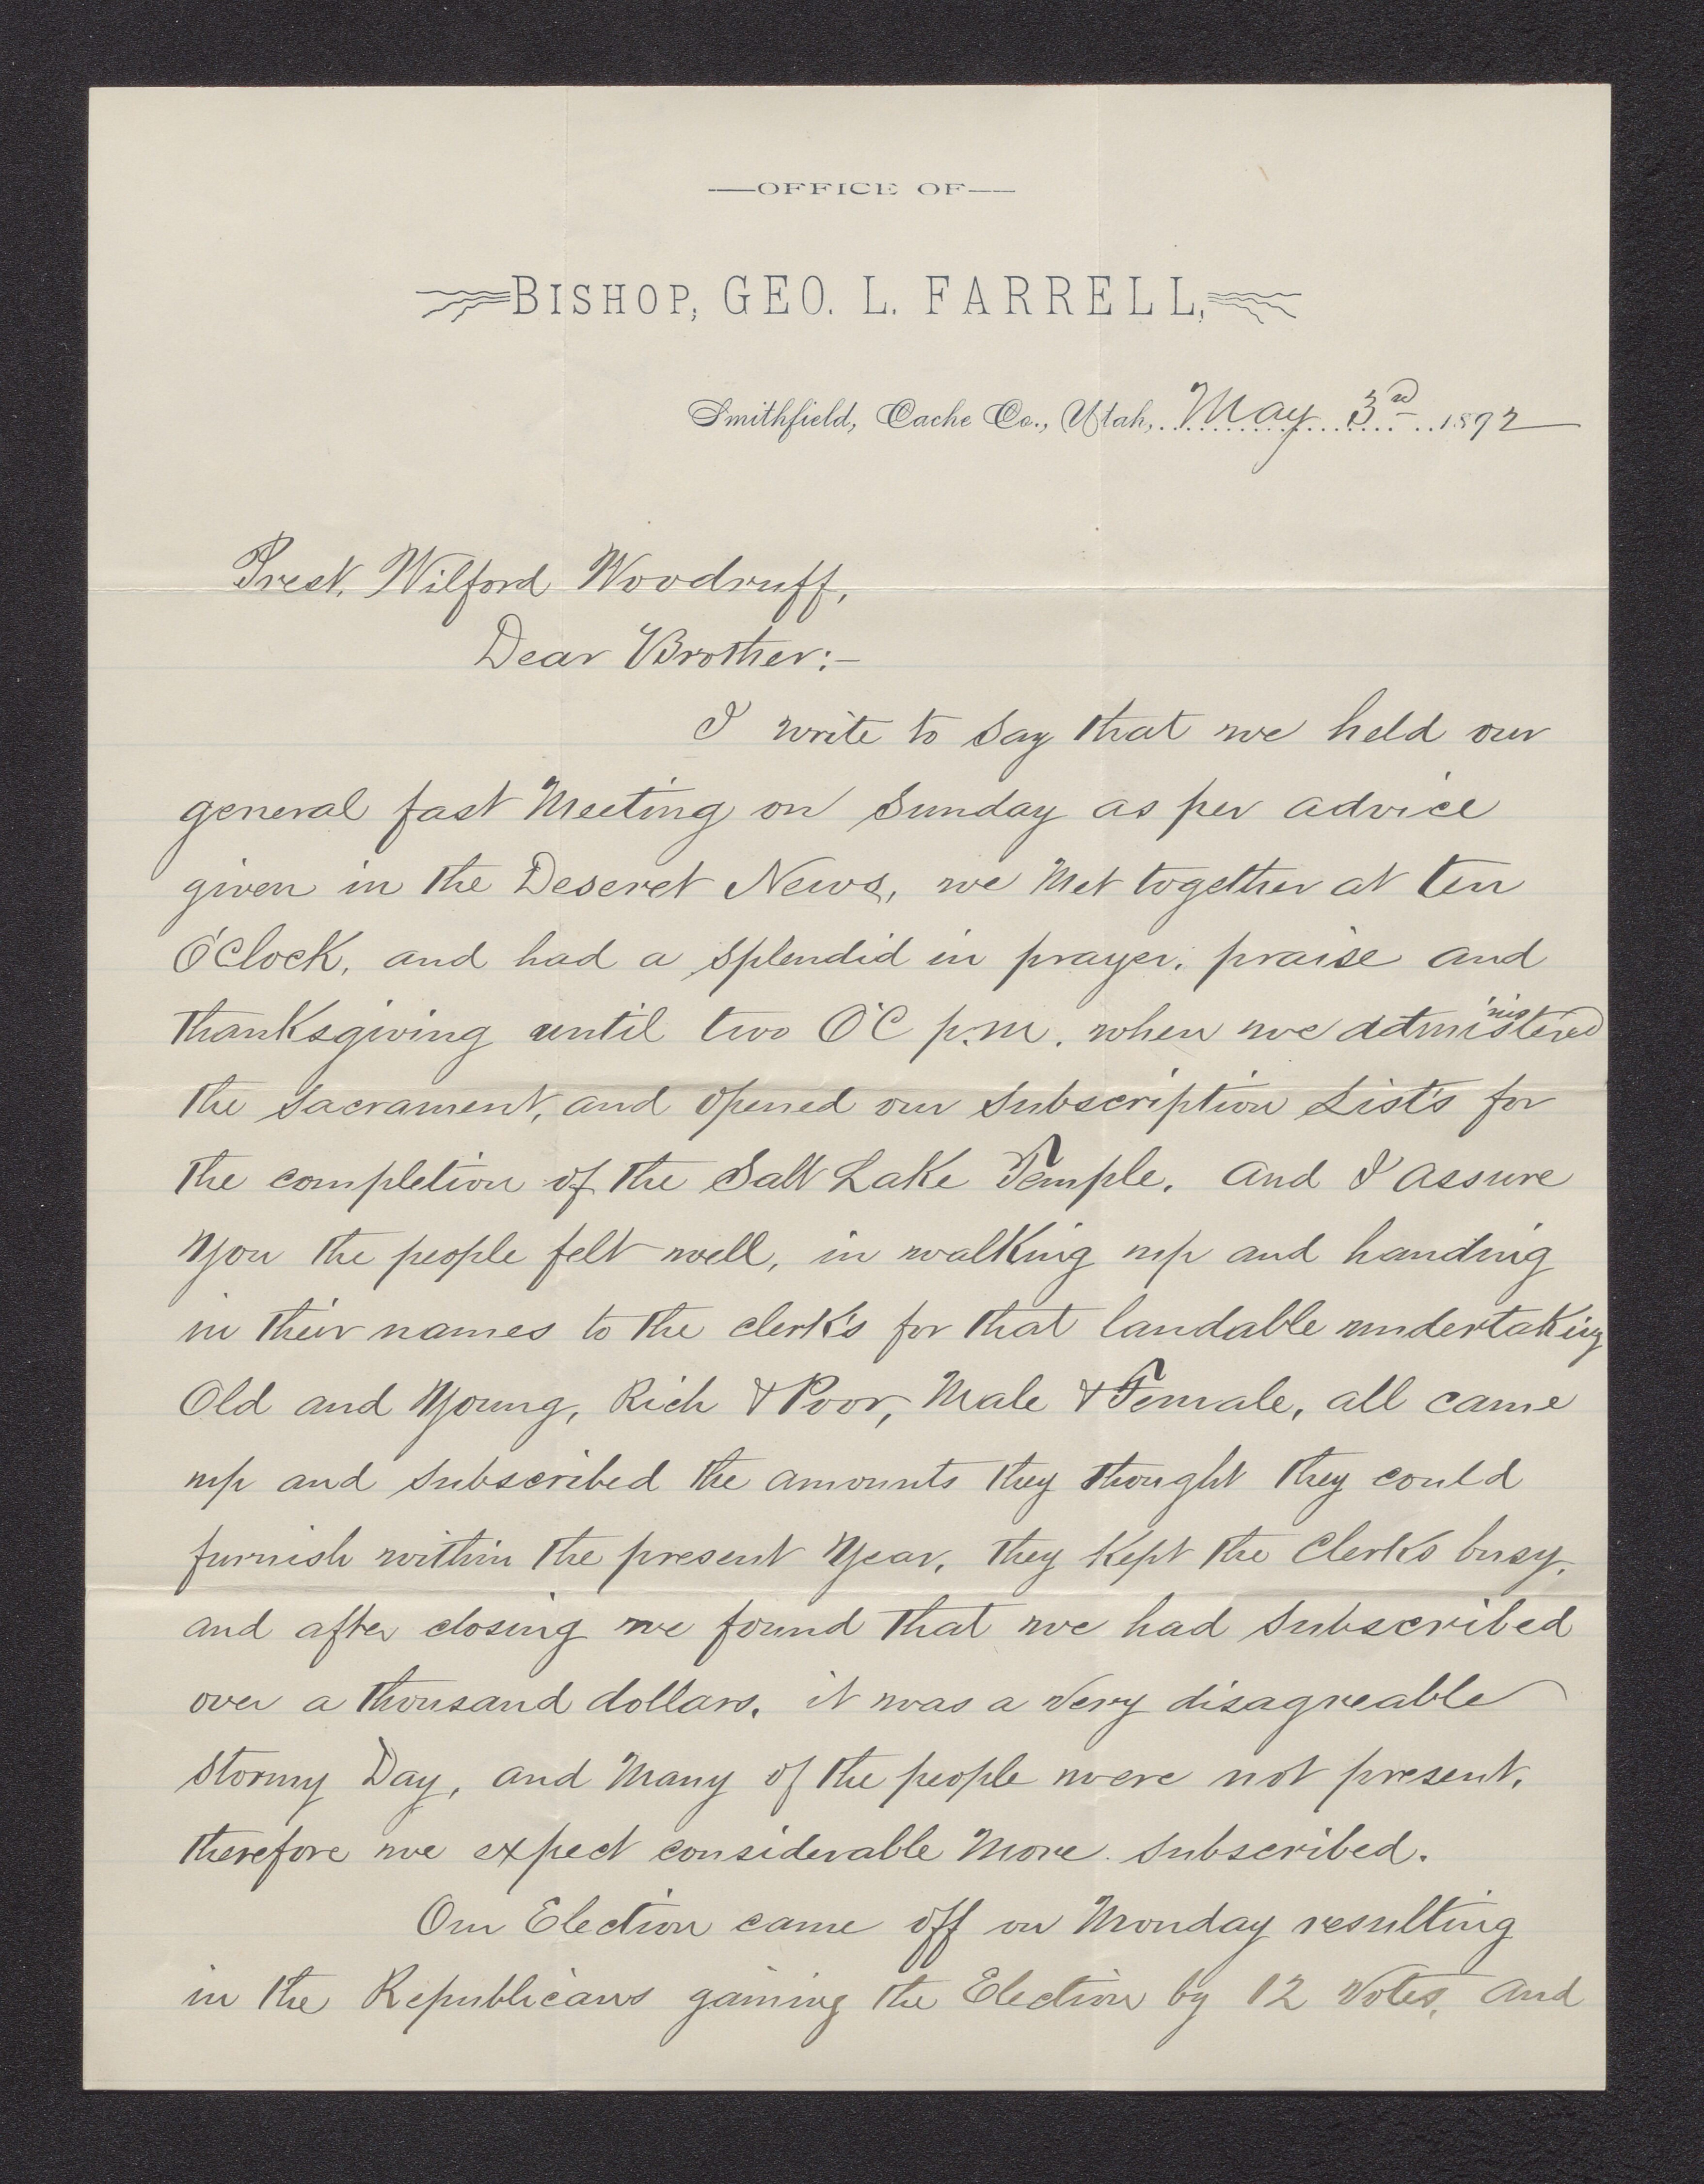 —OFFICE OF—
BISHOP, GEO. L. FARRELL,
Smithfield, Cache Co., Utah, May 3rd 1892
Prest. Wilford Woodruff,
Dear Brother:-
I write to Say that we held our
general fast Meeting on Sunday as per advice
given in the Deseret News, we Met together at ten
O'Clock, and had a Splendid in prayer, praise and
thanksgiving until two O'C p.m. when we administered
the Sacrament, and opened our Subscription Lists for
the completion of the Salt Lake Temple. And I assure
You the people felt well, in walking up and handing
in their names to the clerk's for that laudable undertaking
Old and Young, Rich & Poor, Male & Female, all came
up and Subscribed the amounts they thought they could
furnish within the present Year, they Kept the Clerks busy,
and after closing we found that we had Subscribed
over a thousand dollars, it was a Very disagreable
Stormy Day, and Many of the people were not present,
therefore we expect considerable More Subscribed.
Our Election came off on Monday resulting
in the Republicans gaining the Election by 12 Votes, And